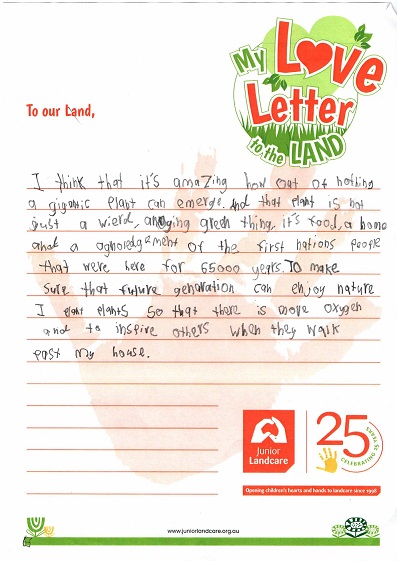 My
Love
Letter
to the LAND
To our Land,
I think that it's amazing how out of nothing
a gigantic plant can emerge. And that plant is not
just a wierd, green thing, it's food, a home
and a of the first nations people
that were here for 65000 years. To make
sure that future generation can enjoy nature
I plant plants so that there is more oxygen
and to inspire others when they walk
past my house.
Junior
Landcare
25
CELEBRATING 25 YEARS
Opening children's hearts and hands to landcare since 1998
www.juniorlandcare.org.au